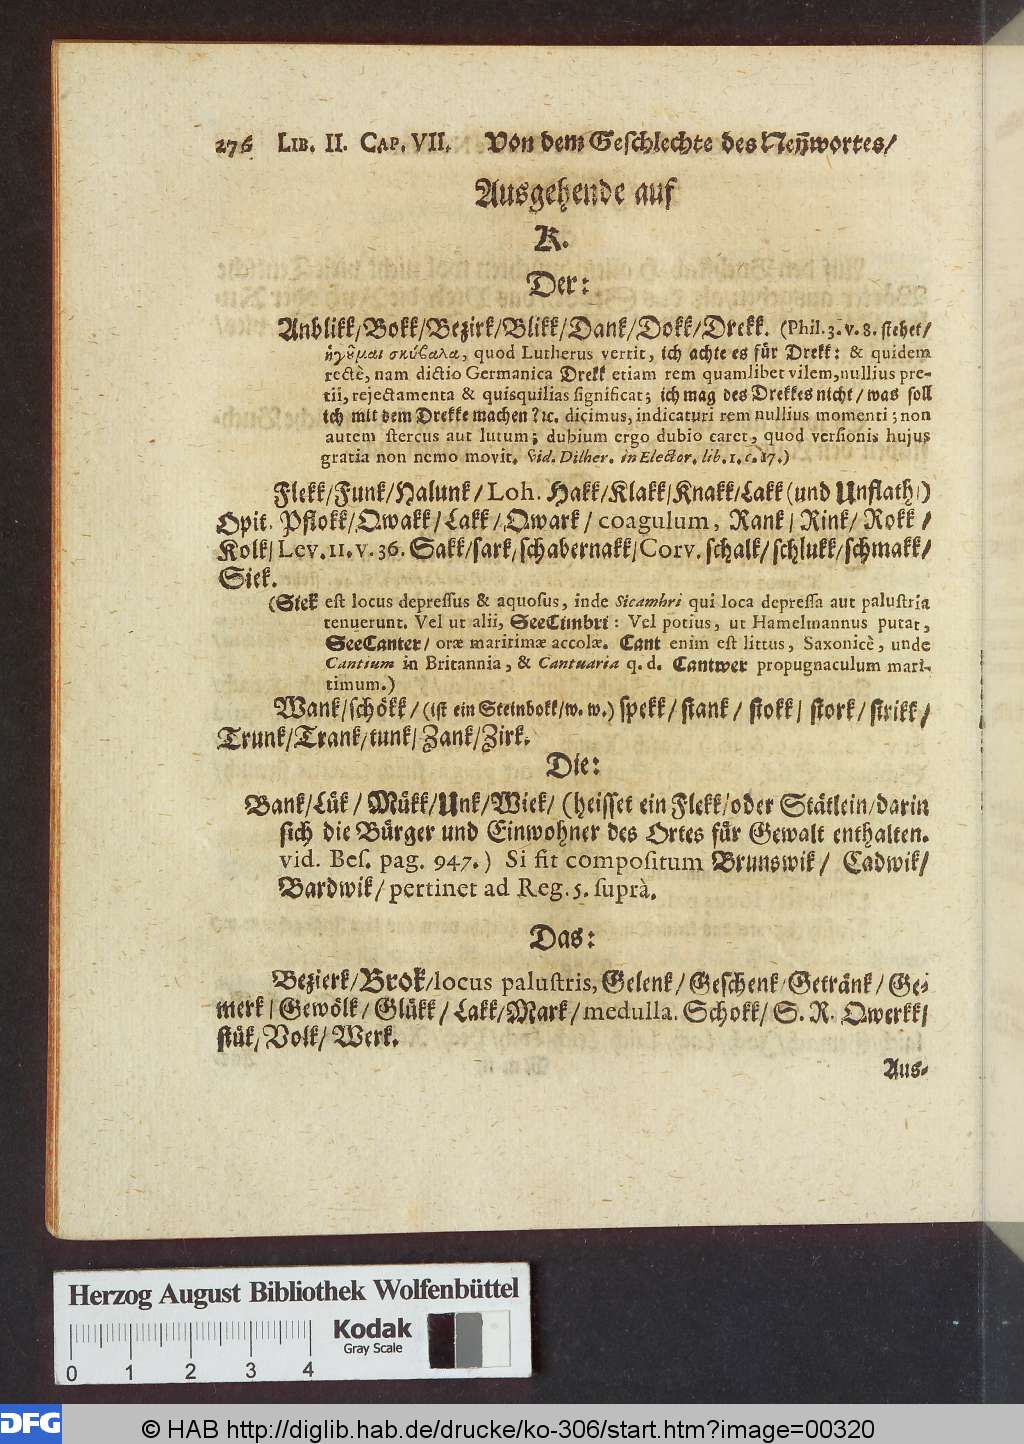 276 Lib. II. Cap. VII. Von dem Geschlechte des Neñwortes/
Ausgehende auf
K.
Der:
Anblikk/Bokk/Bezirk/Blikk/Dank/Dokk/Drekk. (Phil. 3. v. 8. stehet/
ἡγȣ͂μαι σκύβαλα, quod Lutherus vertit, ich achte es für Drekk: & quidem
rectè, nam dictio Germanica Drekk etiam rem quamlibet vilem, nullius pre-
tii, rejectamenta & quisquilias significat; ich mag des Drekkes nicht/ was soll
ich mit dem Drekke machen? ꝛc. dicimus, indicaturi rem nullius momenti; non
autem stercus aut lutum; dubium ergo dubio caret, quod versionis hujus
gratia non nemo movit. vid. Dilher. in Elector. lib. 1. c. 17.)
Flekk/Funk/Halunk/ Loh. Hakk/Klakk/Knakk/Lakk (und Unflath/)
Opit. Pflokk/Qwakk/Lakk/Qwark/ coagulum, Rank/ Rink/ Rokk/
Kolk/ Lev. 11. v. 36. Sakk/sark/schabernakk/Corv. schalk/schlukk/schmakk/
Siek.
(Siek est locus depressus & aquosus, inde Sicambri qui loca depressa aut palustria
tenuerunt. Vel ut alii, SeeCimbri: Vel potius, ut Hamelmannus putat,
SeeCanter/ oræ maritimæ accolæ. Cant enim est littus, Saxonicè, unde
Cantium in Britannia, & Cantuaria q. d. Cantwer propugnaculum mari-
timum.)
Wank/schökk/ (ist ein Steinbokk/w. w.) spekk/ stank/ stokk/ stork/ strikk/
Trunk/Trank/tunk/ Zank/Zirk.
Die:
Bank/Lük/ Mükk/Unk/Wiek/ (heisset ein Flekk/oder Stätlein/darin
sich die Bürger und Einwohner des Ortes für Gewalt enthalten.
vid. Bes. pag. 947.) Si fit compositum Brunswik/ Cadwik/
Bardwik/ pertinet ad Reg. 5. suprà.
Das:
Bezierk/Brok/locus palustris, Gelenk/ Geschenk/Getränk/ Ge-
merk/ Gewölk/ Glükk/ Lakk/Mark/ medulla. Schokk/ S. R. Qwerkk/
stük/ Volk/ Werk.
Aus-
Herzog August Bibliothek Wolfenbüttel
Kodak
Gray Scale
0 1 2 3 4
DFG © HAB http://diglib.hab.de/drucke/ko-306/start.htm?image=00320